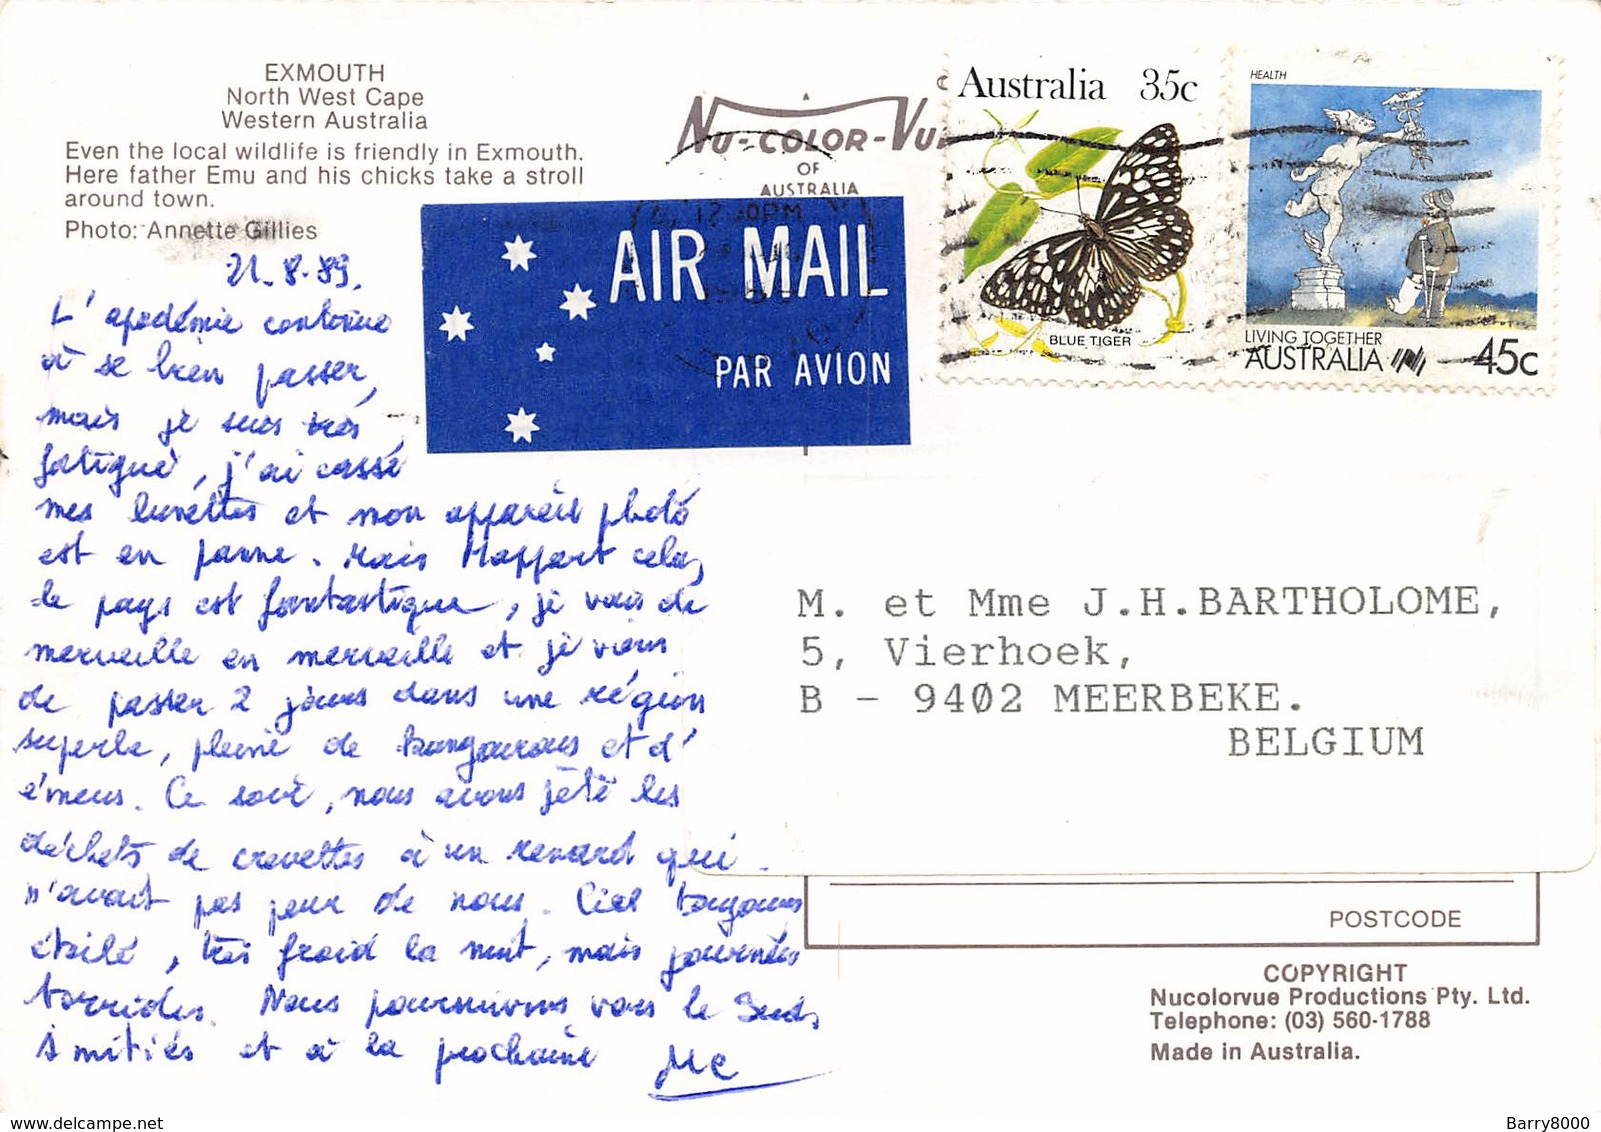 EXMOUTH
North West Cape
Western Australia
Even the local wildlife is friendly in Exmouth.
Here father Emu and his chicks take a stroll
around town.
Photo: Annette Gillies
NU-COLOR-VUE
OF
AUSTRALIA
AIR MAIL
PAR AVION
Australia 35c
BLUE TIGER
HEALTH
LIVING TOGETHER
AUSTRALIA 45c
21.8.89.
L'apodémie continue
à se bien passer,
mais je suis très
fatigué, j'ai cassé
mes lunettes et mon appareil photo
est en panne. Mais à part cela,
le pays est fantastique, je vais de
merveille en merveille et je viens
de passer 2 jours dans une région
superbe, pleine de kangourous et d'
émeus. Ce soir, nous avons jeté les
déchets de crevettes à un renard qui
n'avait pas peur de nous. Ciel toujours
étoilé, très froid la nuit, mais journées
torrides. Nous poursuivons vers le Sud.
Amitiés et à la prochaine
M. et Mme J.H.BARTHOLOME,
5, Vierhoek,
B - 9402 MEERBEKE.
BELGIUM
POSTCODE
COPYRIGHT
Nucolorvue Productions Pty. Ltd.
Telephone: (03) 560-1788
Made in Australia.
Barry8000